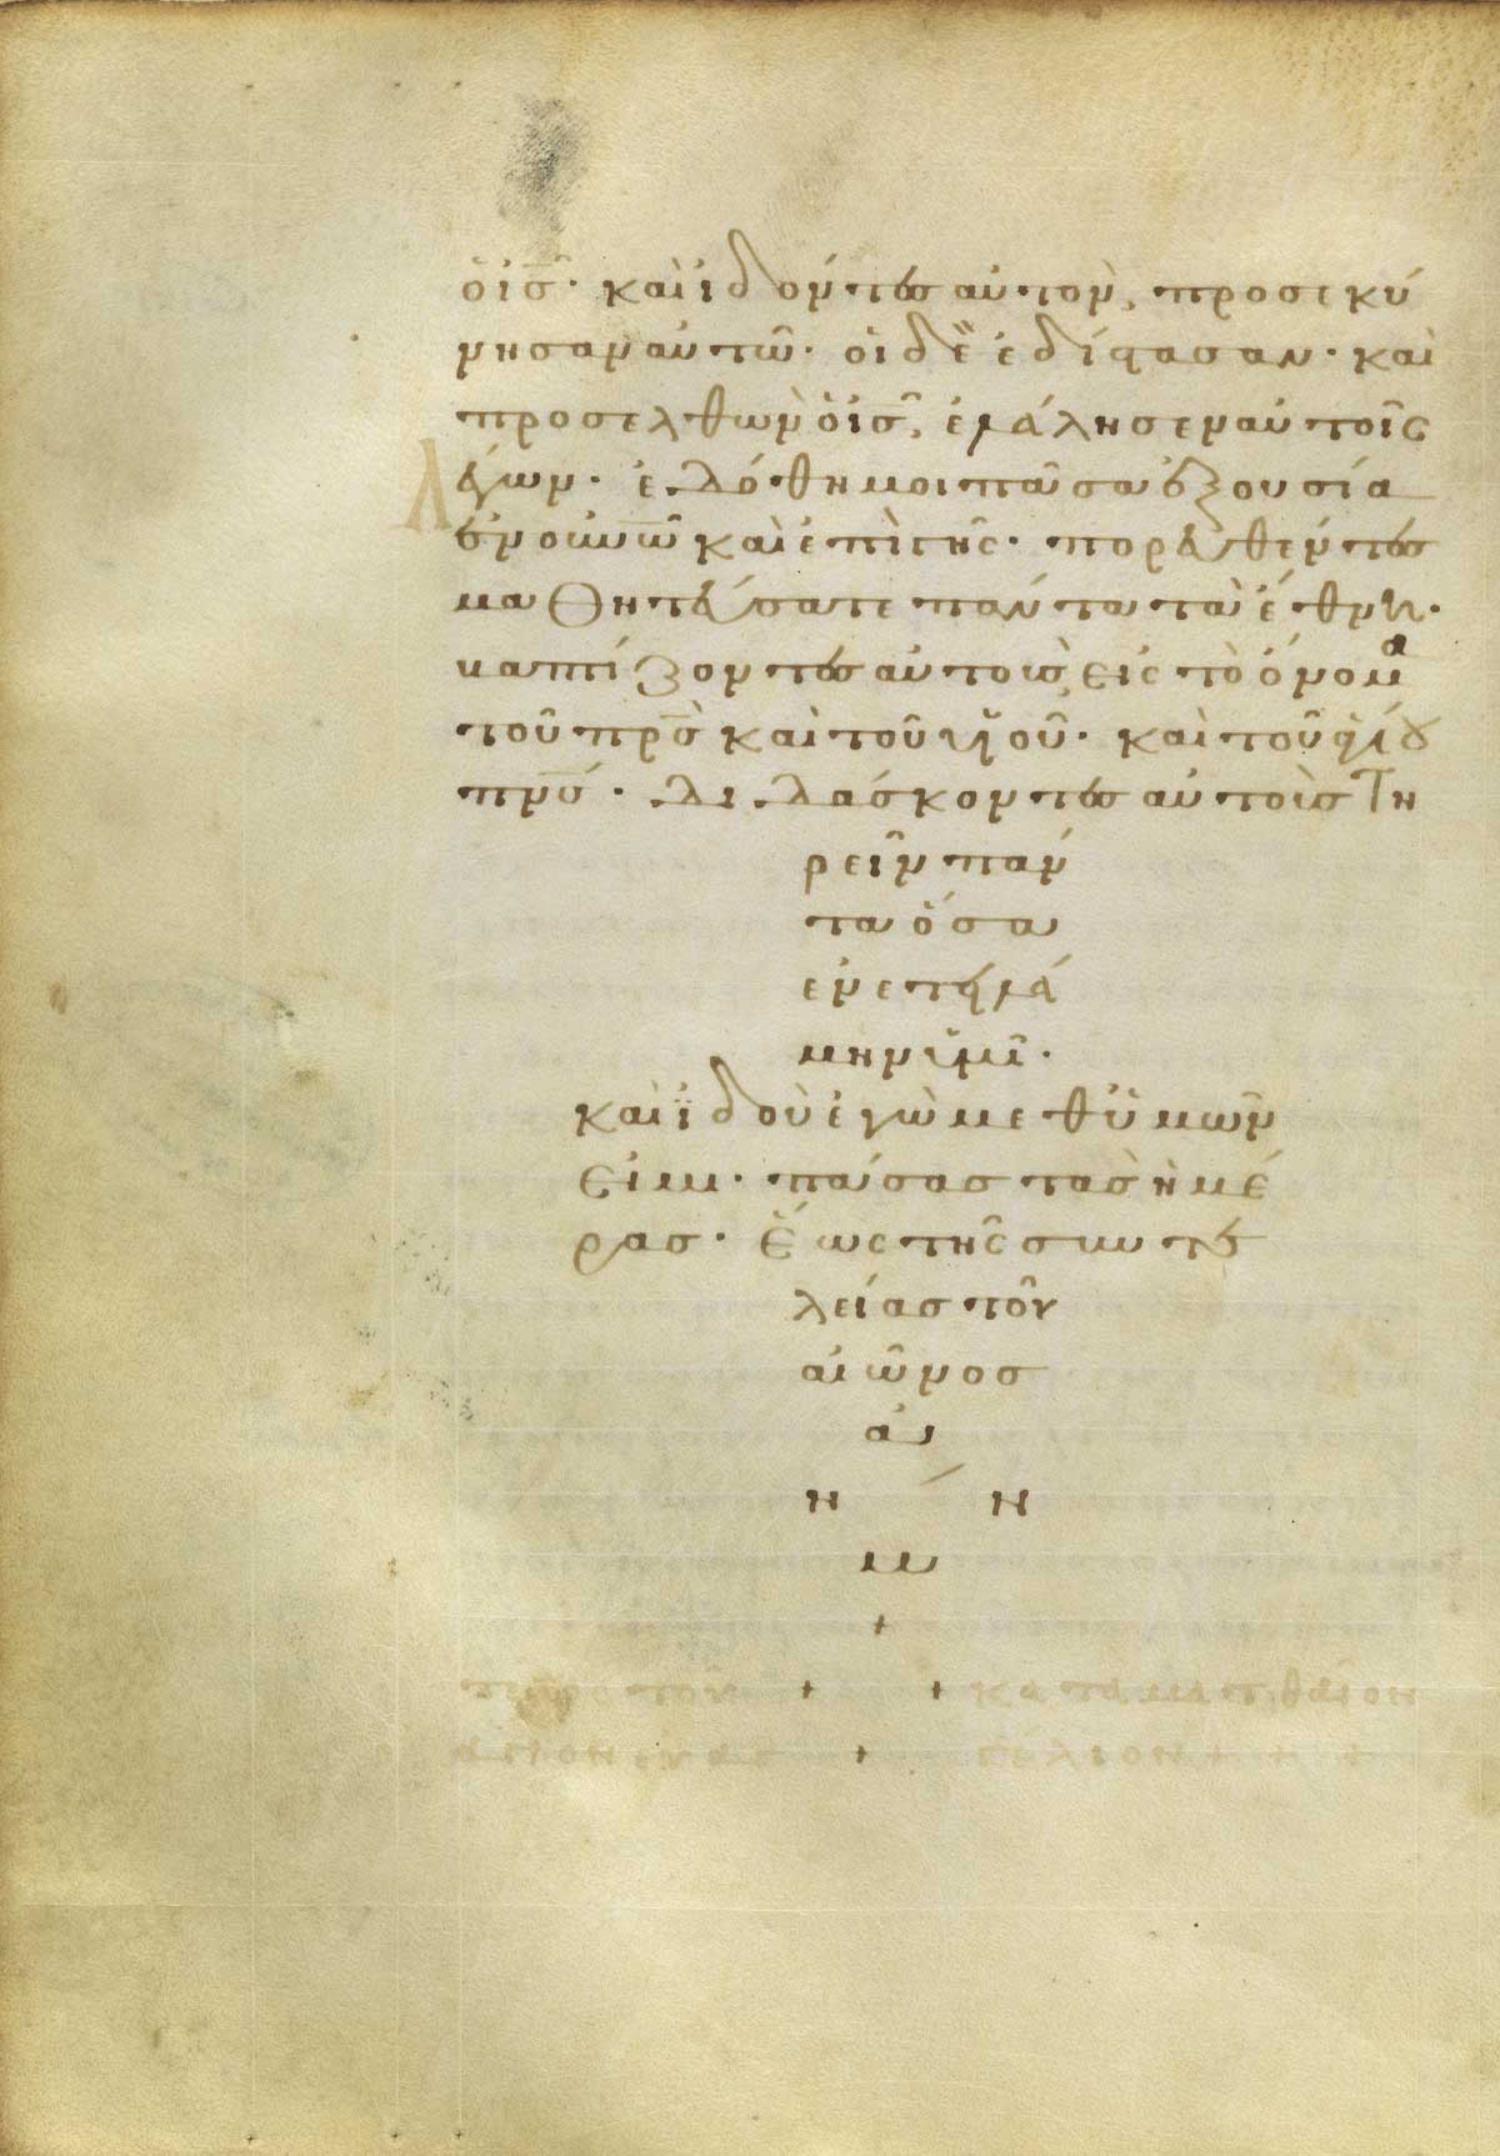 ὁ ις̅· καὶ ἰδόντες αὐτὸν, προσεκύ
νησαν αὐτῶ· οἱ δὲ ἐδίστασαν· καὶ
προσελθὼν ὁ ις̅, ἐλάλησεν αὐτοῖς
λέγων· ἐδόθη μοι πᾶσα ἐξουσία
ἐν οὐνῶ̅ καὶ ἐπὶ γῆς· πορευθέντες
μαθητεύσατε πάντα τὰ ἔθνη·
βαπτίζοντες αὐτοὺς εἰς τὸ ὄνομα
τοῦ πρ̅ς καὶ τοῦ υἱοῦ· καὶ τοῦ ἁγίου
πν̅ς· διδάσκοντες αὐτοὺς τη
ρεῖν πάν
τα ὅσα
ἐνετειλά
μην ὑμῖ·
καὶ ϊδοὺ ἐγὼ μεθ ὑμῶν
εἰμι· πάσας τὰς ἡμέ
ρας· ἕως τῆς συντε
λείας τοῦ
αἰῶνος
ἀ
η ν
μ
+
+ + κατα ματθαῖον
+ + + +